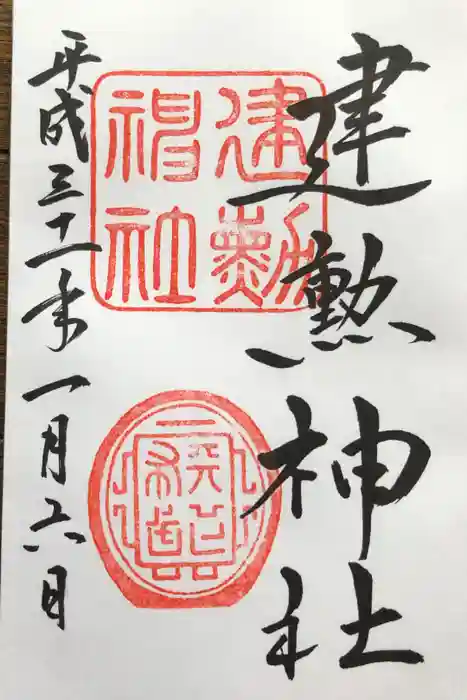 建勲神社
建勲
神社
平成三十一年一月六日